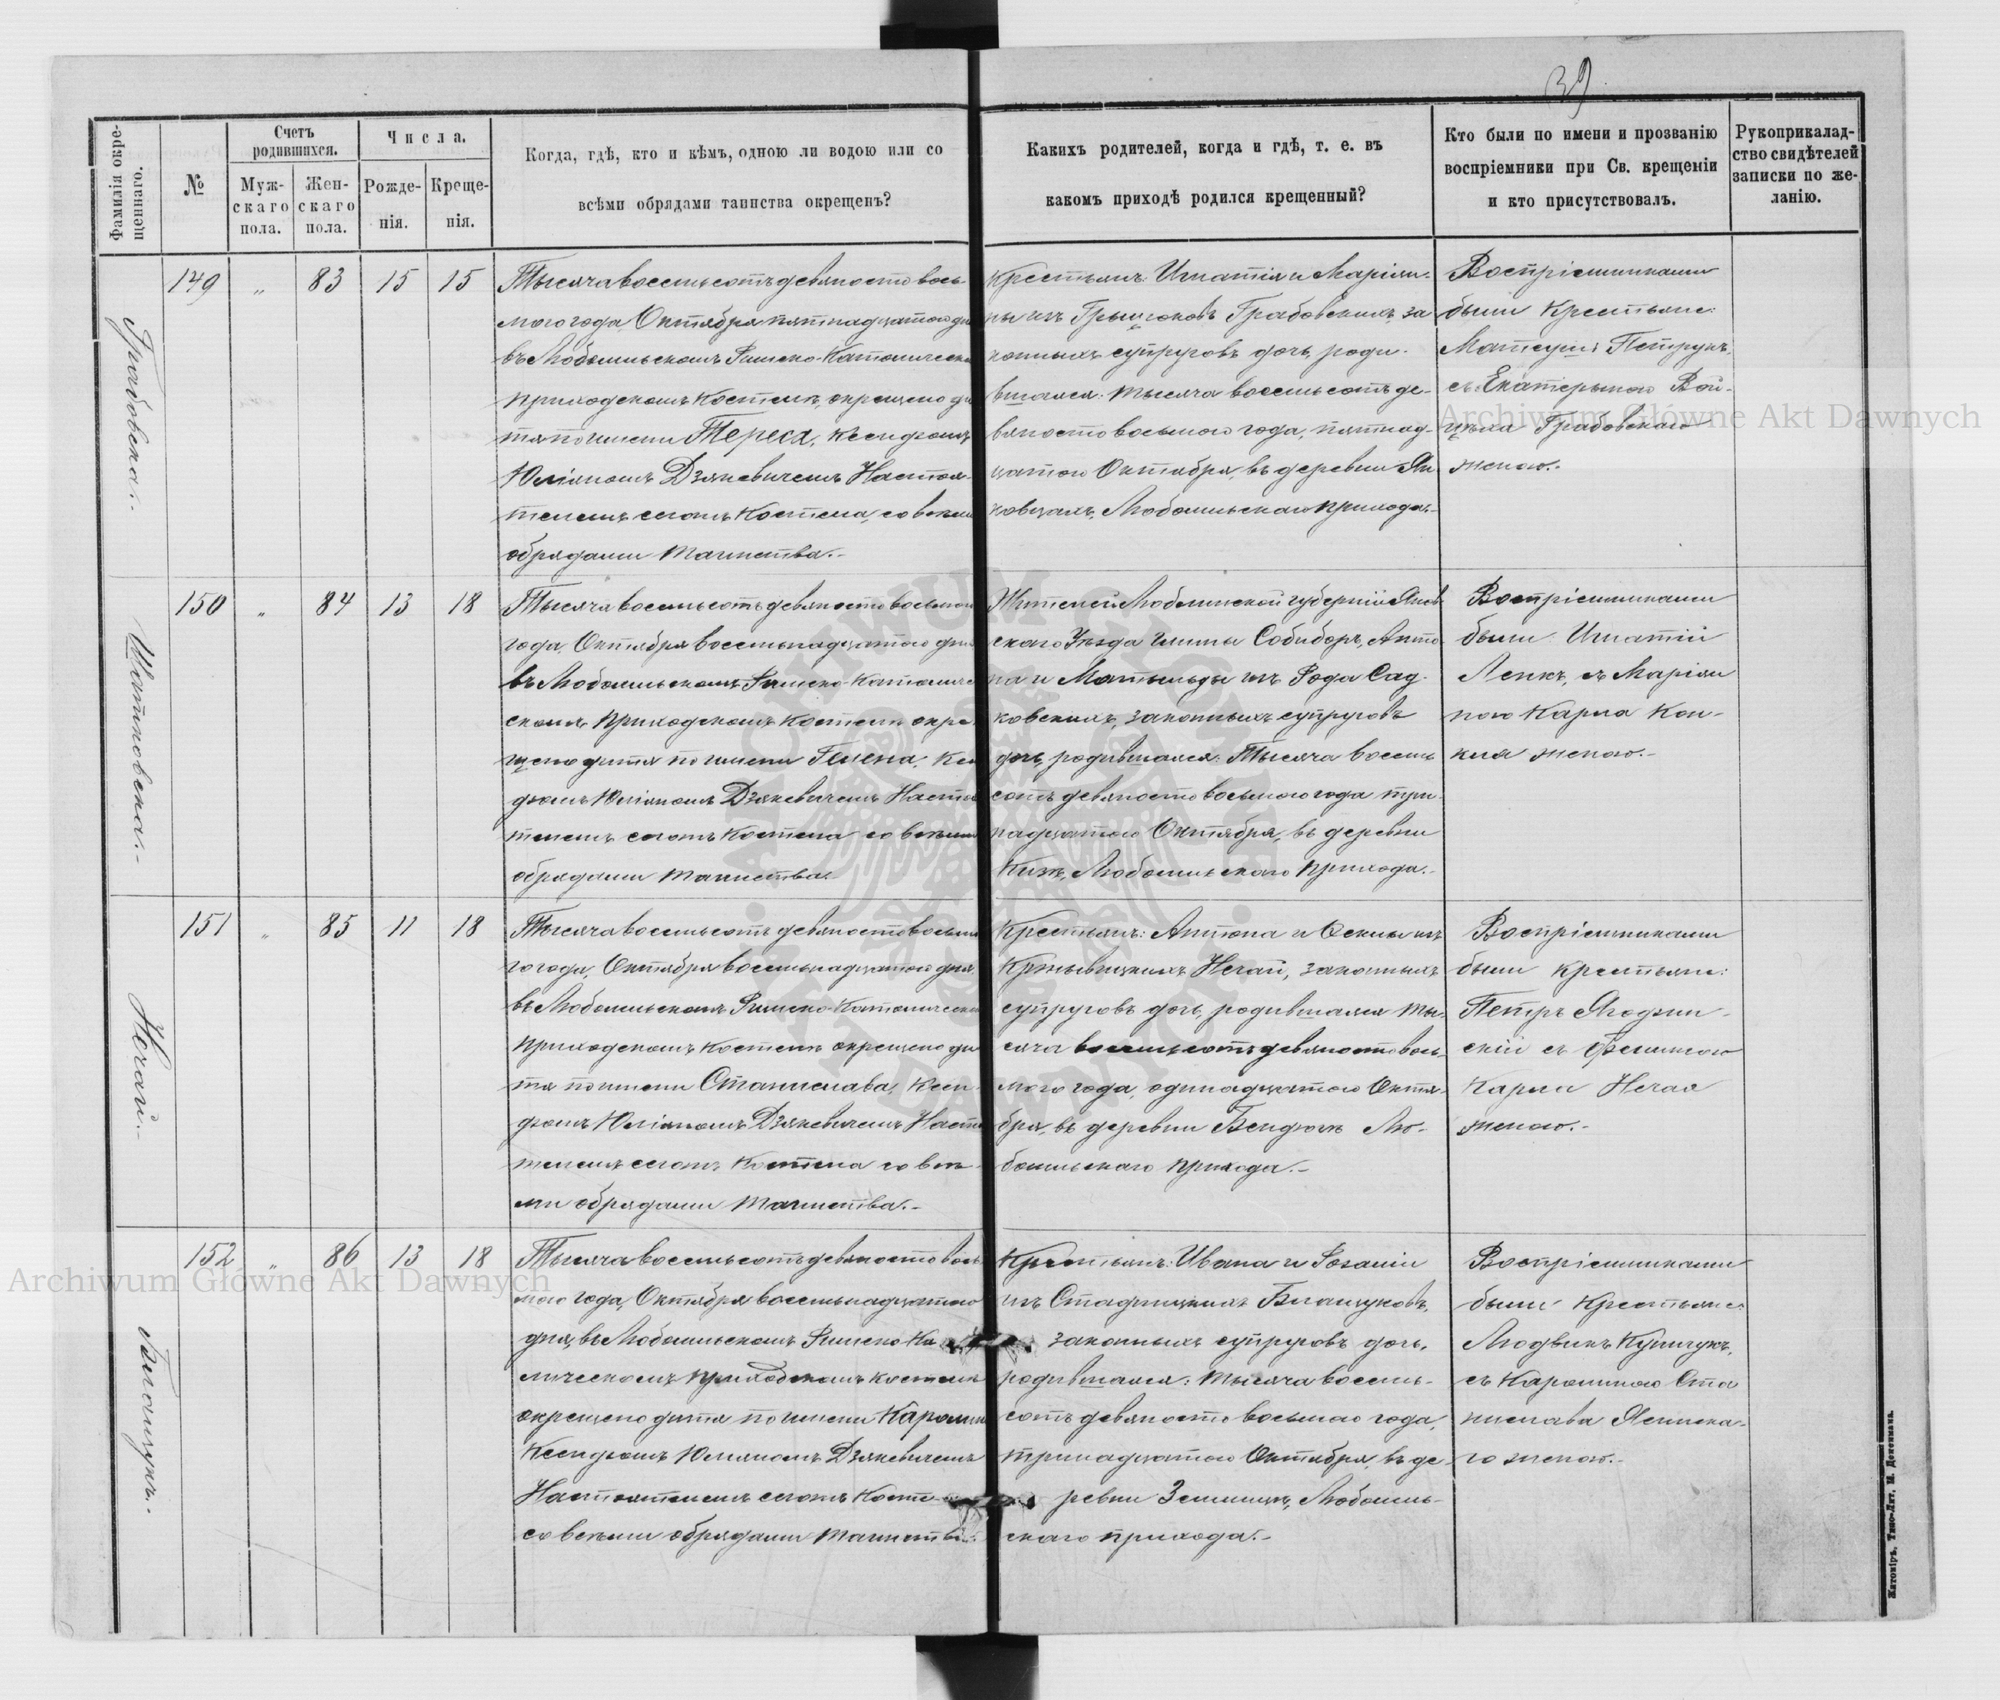 39
Фамилія окре-
щеннаго.
№
Счетъ
родившихся.
Муж-
скаго
пола.
Жен-
скаго
пола.
Числа.
Рожде-
нія.
Креще-
нія.
Когда, гдѣ, кто и кѣмъ, одною ли водою или со
всѣми обрядами таинства окрещенъ?
Какихъ родителей, когда и гдѣ, т. е. въ
какомъ приходѣ родился крещенный?
Кто были по имени и прозванію
воспріемники при Св. крещеніи
и кто присутствовалъ.
Рукоприкалад-
ство свидѣтелей
записки по же-
ланію.
Грабовска.-
149 „ 83 15 15
Тысяча восемьсотъ девяносто вось-
мого года Октября пятнадцатого дня
въ Любомльскомъ Римско-Католическо
приходскомъ Костелѣ, окрещено ди
тя по имени Тереса, Ксендзомъ
Юліяномъ Дзяневичемъ Настоя-
телемъ сегожъ Костела, со всѣми
обрядами таинства.-
Крестьянъ: Игнатія и Маріян-
ны изъ Грыцюковъ Грабовскихъ, за
конныхъ супруговъ дочь, роди-
вшаяся: тысяча восемьсотъ де-
вяносто восьмого года, пятнад-
цатого Октября, въ деревни Ян
ковцахъ, Любомльскаго прихода.-
Воспріемниками
были Крестьяне:
Матеушъ Петрукъ,
съ Екатериною Вой-
цѣха Грабовскаго
женою.-
Шатковска.-
150 „ 84 13 18
Тысяча восемьсотъ девяносто восьмого
года Октября восемьнадцатого дня
въ Любомльскомъ Римско-Католиче
скомъ Приходскомъ Костелѣ окре-
щено дитя по имени Гелена, Ксен
дзомъ Юліяномъ Дзяневичемъ Настоя
телемъ сегожъ Костела со всѣми
обрядами таинства.
Жителей Люблинской губерніи
скаго Уѣзда гмины Собиборъ, Анто
на и Матыльды изъ Рода Сад-
ковскихъ, законныхъ супруговъ
дочь, родившаяся: Тысяча восемь
сотъ девяносто восьмого года три-
надцатого Октября, въ деревни
Любомльскаго прихода.-
Воспріемниками
были Игнатій
Ленкъ, съ Маріян
ною Карла Кон-
кля женою.-
Нечай.-
151 „ 85 11 18
Тысяча восемьсотъ девяносто восьмо
го года, Октября восемьнадцатого дня
въ Любомльскомъ Римско-Католическо
приходскомъ костелѣ окрещено ди
тя по имени Станислава, Ксен-
дзомъ Юліяномъ Дзяневичемъ Настоя
телемъ сегожъ Костела со всѣ-
ми обрядами таинства.-
Крестьянъ: Антона и изъ
Нечай, законныхъ
супруговъ дочь, родившаяся ты-
сяча восемьсотъ девяносто вось-
мого года, одинадцатого Октя-
бря, въ деревни Бендюгѣ Лю-
бомльскаго прихода.-
Воспріемниками
были крестьяне:
Петръ Ягодзин-
скій съ
Карла Нечая
женою.-
152 „ 86 13 18
Тысяча восемьсотъ девяносто вось
мого года, Октября восемьнадцатого
дня, въ Любомльскомъ Римско Ка
лическомъ приходскомъ костелѣ
окрещено дитя по имени Каролина
Ксендзомъ Юліяномъ Дзяневичемъ
Настоятелемъ сегожъ Косте
со всѣми обрядами таинства.-
Крестьянъ: Ивана и Розаліи
изъ Стадницкихъ
законныхъ супруговъ дочь,
родившаяся: тысяча восемь-
сотъ девяносто восьмого года,
тринадцатого Октября, въ де-
ревни Земмицъ, Любомль-
скаго прихода.-
Воспріемниками
были Крестьяне:
Людвикъ
съ Каролиною Ста
нислава
го женою.-
Житоміръ, Типо-Лит. М. Дененмана.
Archiwum Główne Akt Dawnych
Archiwum Główne Akt Dawnych